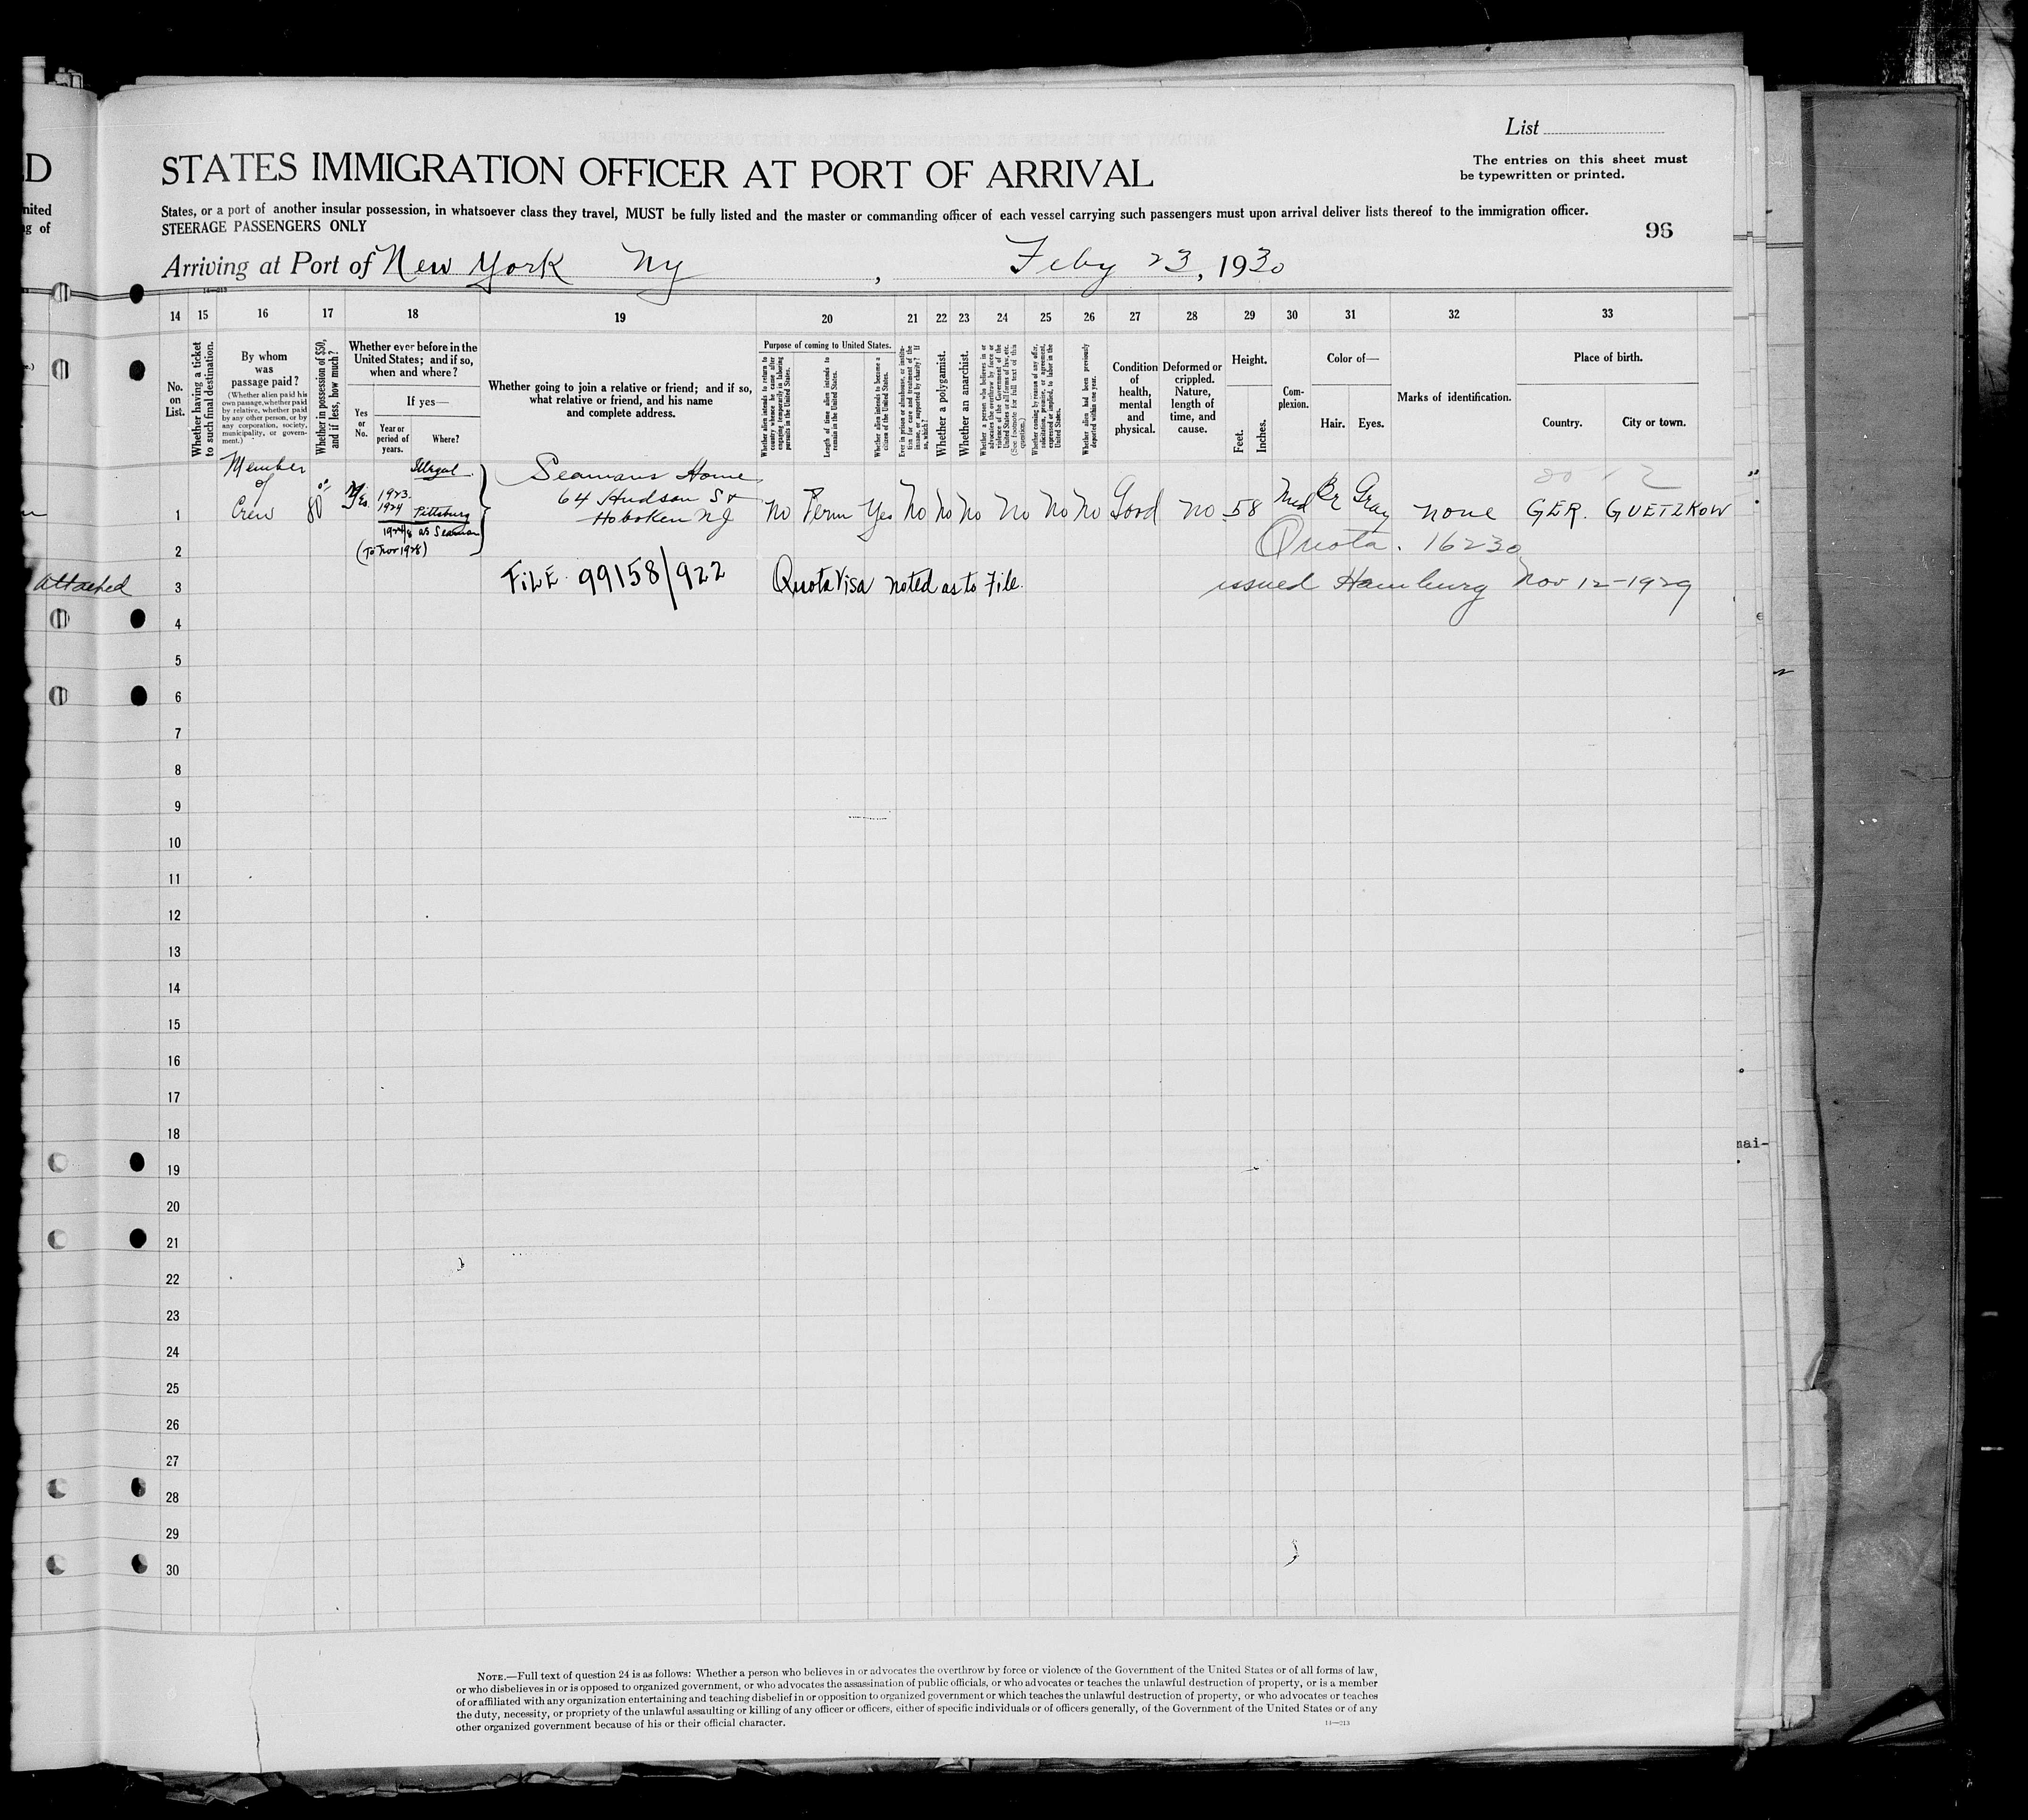 List
The entries on this sheet must
be typewritten or printed.
STATES IMMIGRATION OFFICER AT PORT OF ARRIVAL
States, or a port of another insular possession, in whatsoever class they travel, MUST be fully listed and the master or commanding officer of each vessel carrying such passengers must upon arrival deliver lists thereof to the immigration officer.
STEERAGE PASSENGERS ONLY
96
Arriving at Port of New York Ny , Feby 23, 1930
14—213
14 15 16 17 18 19 20 21 22 23 24 25 26 27 28 29 30 31 32 33
No. on List.
Whether having a ticket to such final destination.
By whom was passage paid?
(Whether alien paid his own passage, whether paid by relative, whether paid by any other person, or by any corporation, society, municipality, or government.)
Whether in possession of $50, and if less, how much?
Whether ever before in the United States; and if so, when and where?
Yes or No.
If yes—
Year or period of years.
Where?
Whether going to join a relative or friend; and if so, what relative or friend, and his name and complete address.
Purpose of coming to United States.
Whether alien intends to return to country whence he came after engaging temporarily in laboring pursuits in the United States.
Length of time alien intends to remain in the United States.
Whether alien intends to become a citizen of the United States.
Ever in prison or almshouse, or institution for care and treatment of the insane, or supported by charity? If so, which?
Whether a polygamist.
Whether an anarchist.
Whether a person who believes in or advocates the overthrow by force or violence of the Government of the United States or all forms of law, etc. (See footnote for full text of this question.)
Whether coming by reason of any offer, solicitation, promise, or agreement, expressed or implied, to labor in the United States.
Whether alien had been previously deported within one year.
Condition of health, mental and physical.
Deformed or crippled. Nature, length of time, and cause.
Height.
Feet. Inches.
Complexion.
Color of—
Hair. Eyes.
Marks of identification.
Place of birth.
Country. City or town.
Member of Crew
80
Yes
Illegal
1923
1924 Pittsburg
1924/8 as Seaman
(To Nov 1928)
Seamans Home
64 Hudson St
Hoboken NJ
No Perm Yes No No No No No No Good no 58 Med Br Gray none GER. GUETZKOW
Quota. 16230
FILE 99158/922
Quota Visa noted as to File.
issued Hamburg Nov 12-1929
attached
1
2
3
4
5
6
7
8
9
10
11
12
13
14
15
16
17
18
19
20
21
22
23
24
25
26
27
28
29
30
NOTE.—Full text of question 24 is as follows: Whether a person who believes in or advocates the overthrow by force or violence of the Government of the United States or of all forms of law,
or who disbelieves in or is opposed to organized government, or who advocates the assassination of public officials, or who advocates or teaches the unlawful destruction of property, or is a member
of or affiliated with any organization entertaining and teaching disbelief in or opposition to organized government or which teaches the unlawful destruction of property, or who advocates or teaches
the duty, necessity, or propriety of the unlawful assaulting or killing of any officer or officers, either of specific individuals or of officers generally, of the Government of the United States or of any
other organized government because of his or their official character.
14—213